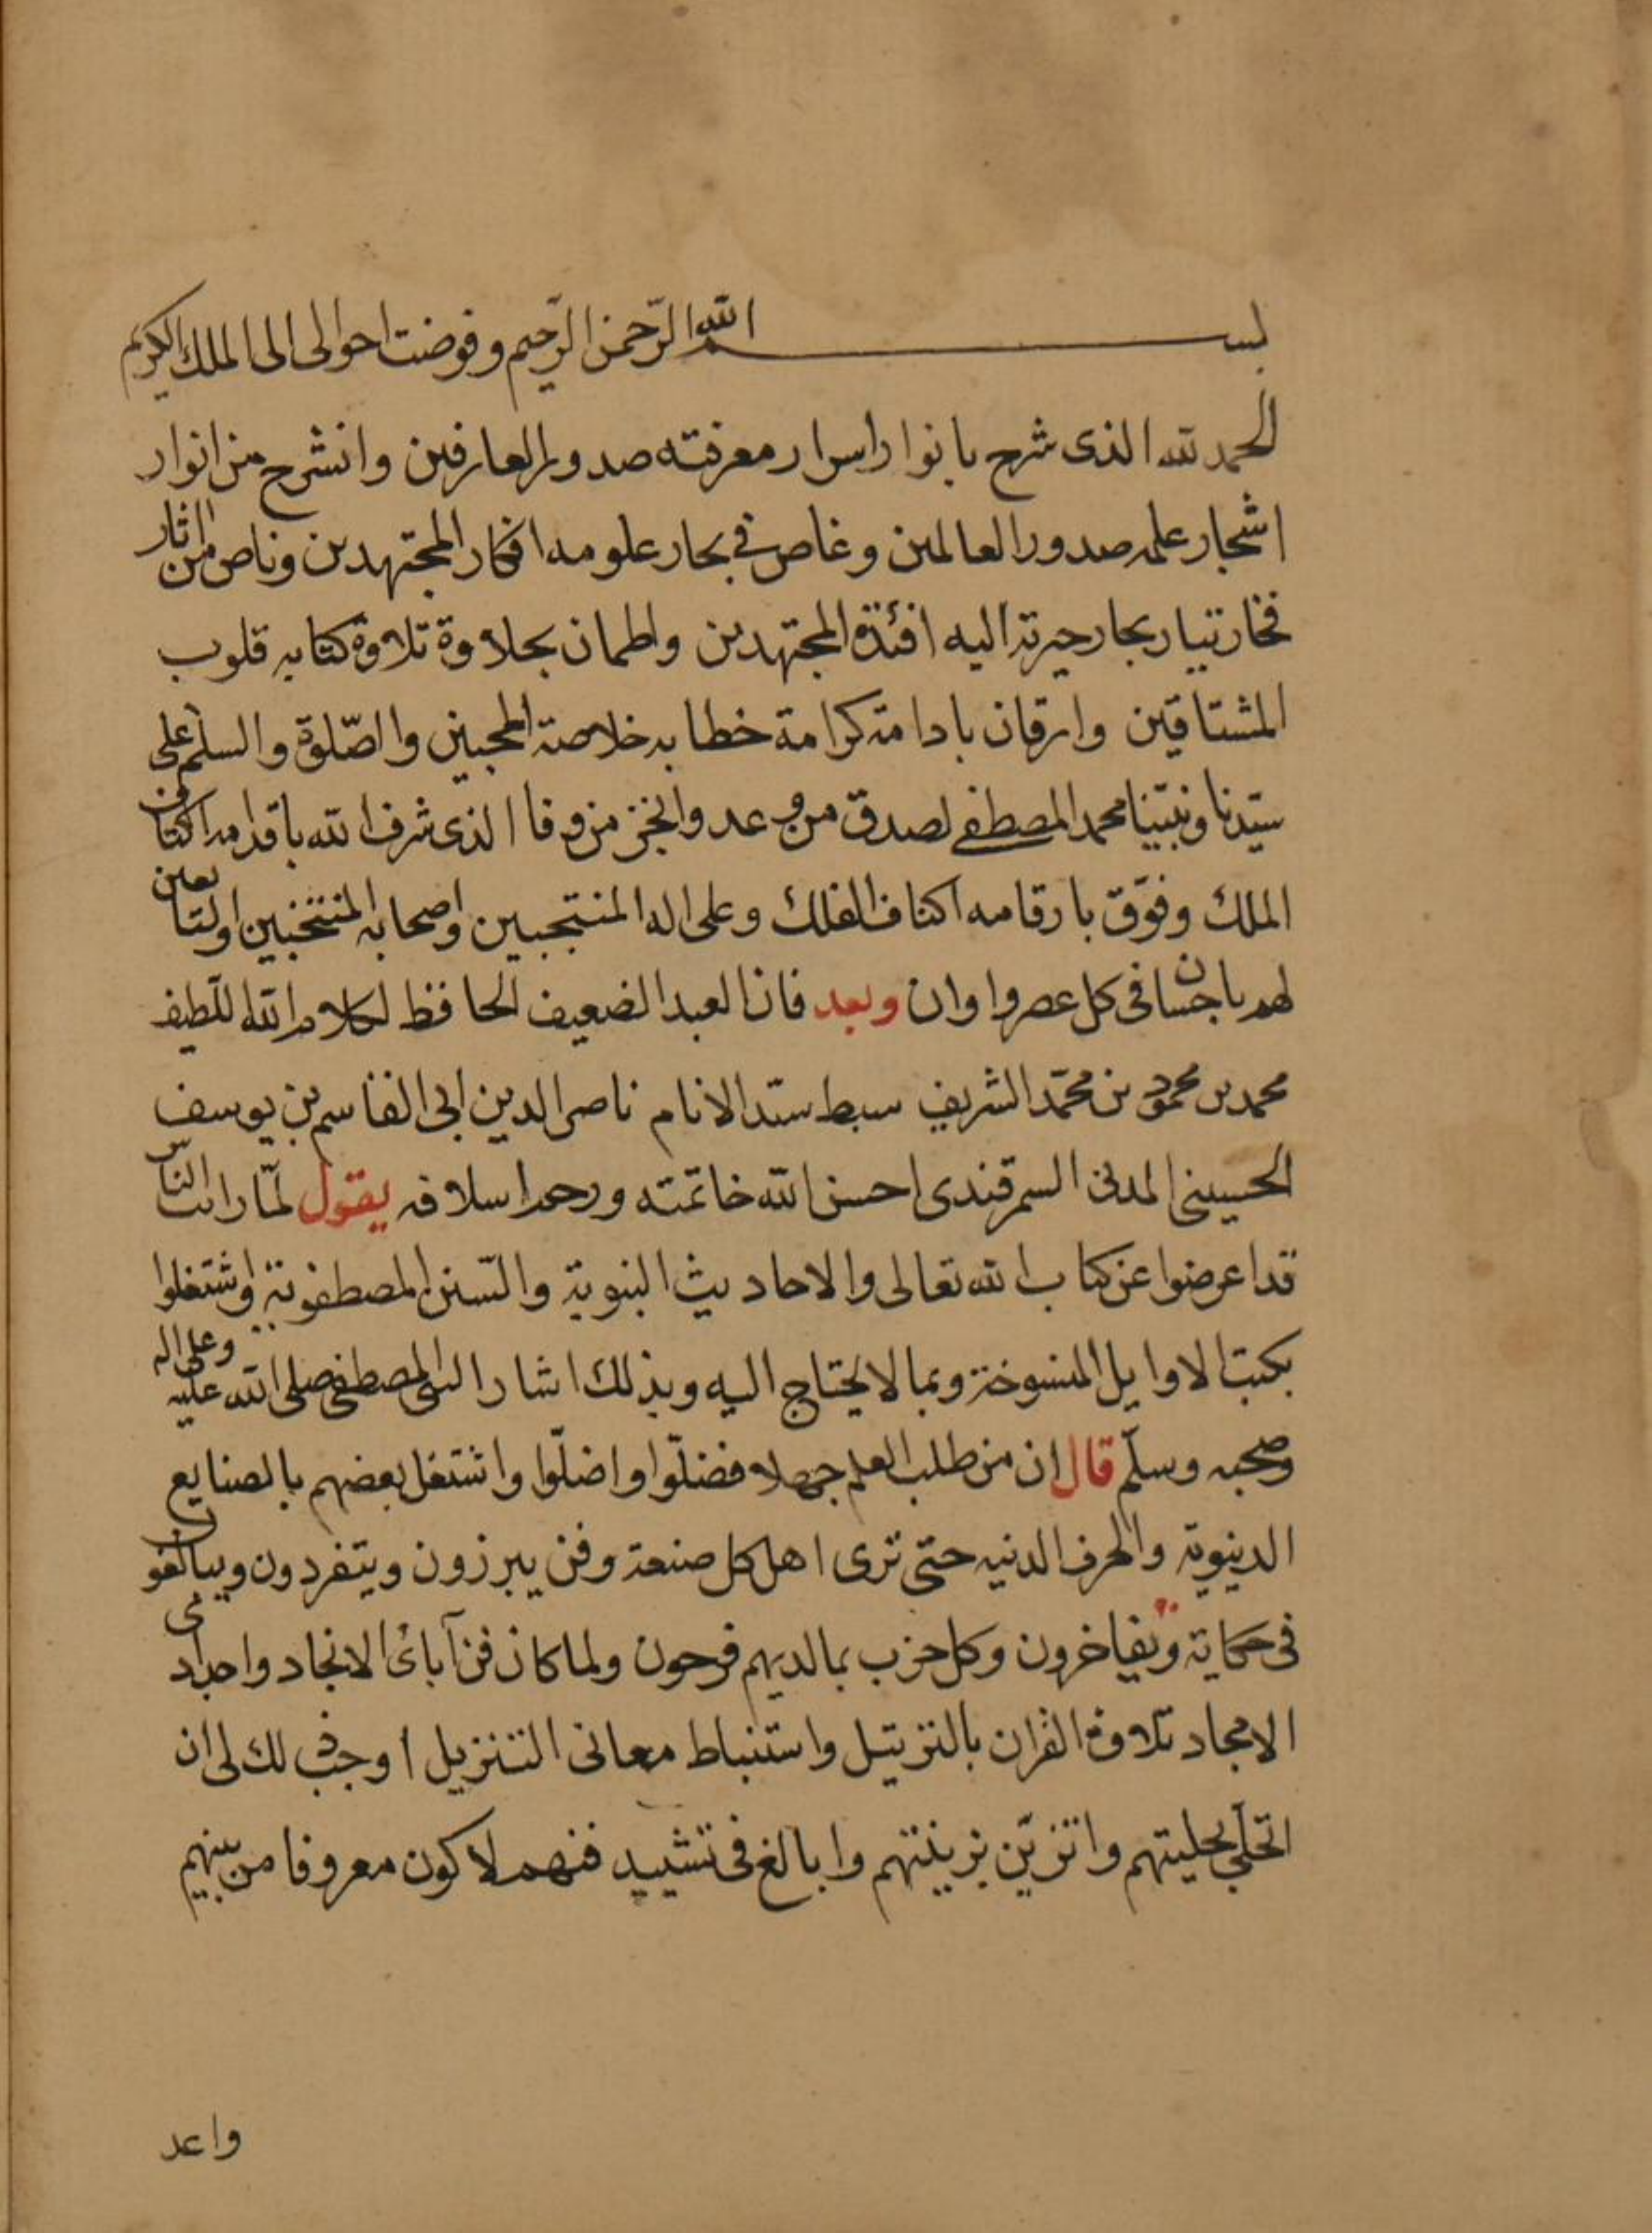 بسم الله الرّحمن الرّحيم وفوضت احوالى الى الملك الكريم
الحمد لله الذى شرح بانوار اسرار معرفته صدور العارفين وانشرح من انوار
اشجار علمه صدور العالمين وغاص فى بحار علومه افكار المجتهدين وناص من اثار
فخار تيار بحار حيرته اليه افئدة المجتهدين واطمان بحلاوة تلاوة كتابه قلوب
المشتاقين وارقان بادامة كرامة خطابه خلاصة المحبين والصّلوة والسلم على
سيّدنا ونبيّنا محمد المصطفى لصدق من وعد وانجز من وفا الذى شرف الله باقدامه اكناف
الملك وفوّق بارقامه اكناف الفلك وعلى اله المنتجبين واصحابه المنتخبين والتابعين
لهم باحسان فى كل عصر واوان وبعد فان العبد الضعيف الحافظ لكلام الله اللطيف
محمد بن محمود بن محمّد الشريف سبط سيّد الانام ناصر الدين ابى القاسم بن يوسف
الحسينى المدنى السمرقندى احسن الله خاتمته ورحم اسلافه يقول لمّا رايت النّاس
قد اعرضوا عن كتاب الله تعالى والاحاديث النبوية والسّنن المصطفوية واشتغلوا
بكتب الاوايل المنسوخة وبما لا يحتاج اليه وبذلك اشار النبى المصطفى صلى الله عليه وعلى اله
وصحبه وسلّم قال ان من طلب العلم جهلا فضلّوا واضلّوا واشتغل بعضهم بالصنايع
الدنيوية والحرف الدنيه حتى ترى اهل كل صنعة وفن يبرزون ويتفردون ويبالغون
فى حكاية ويفاخرون وكل حزب بما لديهم فرحون ولما كان فن آبائ الانجاد واجدادى
الامجاد تلاوة القران بالترتيل واستنباط معانى التنزيل اوجب ذلك لى ان
اتحلّى بحليتهم واتزيّن بزينتهم وابالغ فى تشييد فنهم لاكون معروفا من بينهم
واعد